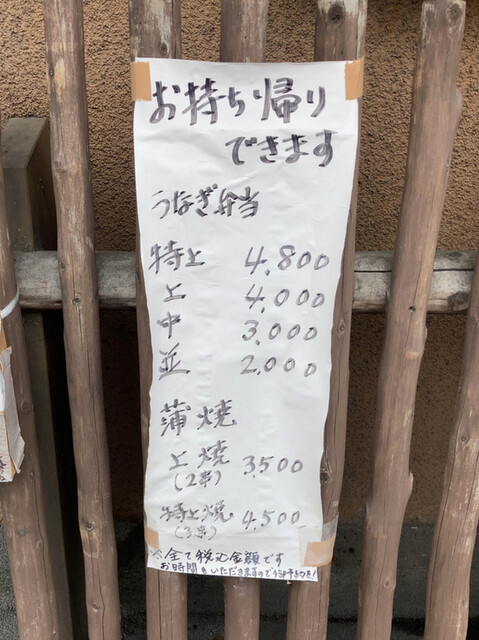 お持ち帰り
できます
うなぎ弁当
特上 4,800
上 4,000
中 3,000
並 2,000
蒲焼
上焼 3,500
(2串)
特上焼 4,500
(3串)
※全て税込金額です
お時間をいただきますのでご予約を!